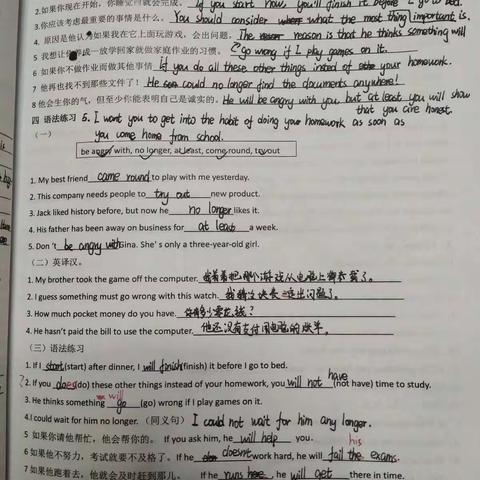 2.如果你现在开始, 你睡觉前就会完成. If you start now, you'll finish it before I go to bed.
3.你应该考虑最重要的事情是什么. You should consider what the most thing important is.
4 原因是他认为如果我在它上面玩游戏, 会出问题. The reason is that he thinks something will
go wrong if I play games on it.
5 我想让你 一放学回家就做家庭作业的习惯.
6 如果你不做作业而做其他事情 if you do all these other things insted of your homework.
7 他再也找不到那些文件了! He could no longer find the documents anywhere!
8 他会生你的气, 但至少你能表明自己是诚实的. He will be angry with you, but at least you will show
that you are honest.
四 语法练习 5. I want you to get into the habit of doing your homework as soon as
(一) you come home from school.
be angry with, no longer, at least, come round, try out
1. My best friend came round to play with me yesterday.
2. This company needs people to try out new product.
3. Jack liked history before, but now he no longer likes it.
4. His father has been away on business for at least a week.
5. Don 't be angry with Gina. She' s only a three-year-old girl.
(二) 英译汉。
1. My brother took the game off the computer. 把那个游戏从电脑上
2. I guess something must go wrong with this watch. 我猜这块表 出问题了。
3. How much pocket money do you have. 你有多少零花钱?
4. He hasn't paid the bill to use the computer. 他还没有支付用电脑的账单。
(三) 语法练习
1. If I start (start) after dinner, I will finish (finish) it before I go to bed.
2. If you does (do) these other things instead of your homework, you will not have (not have) time to study.
3. He thinks something will go (go) wrong if I play games on it.
4.I could wait for him no longer. (同义句) I could not wait for him any longer.
5 如果你请他帮忙, 他会帮你的。 If you ask him, he will help you.
6 如果他不努力, 考试就要不及格了。 If he doesn't work hard, he will fail the his exams.
7 如果他跑着去, 他就会及时赶到那儿。 If he runs here, he will get there in time.